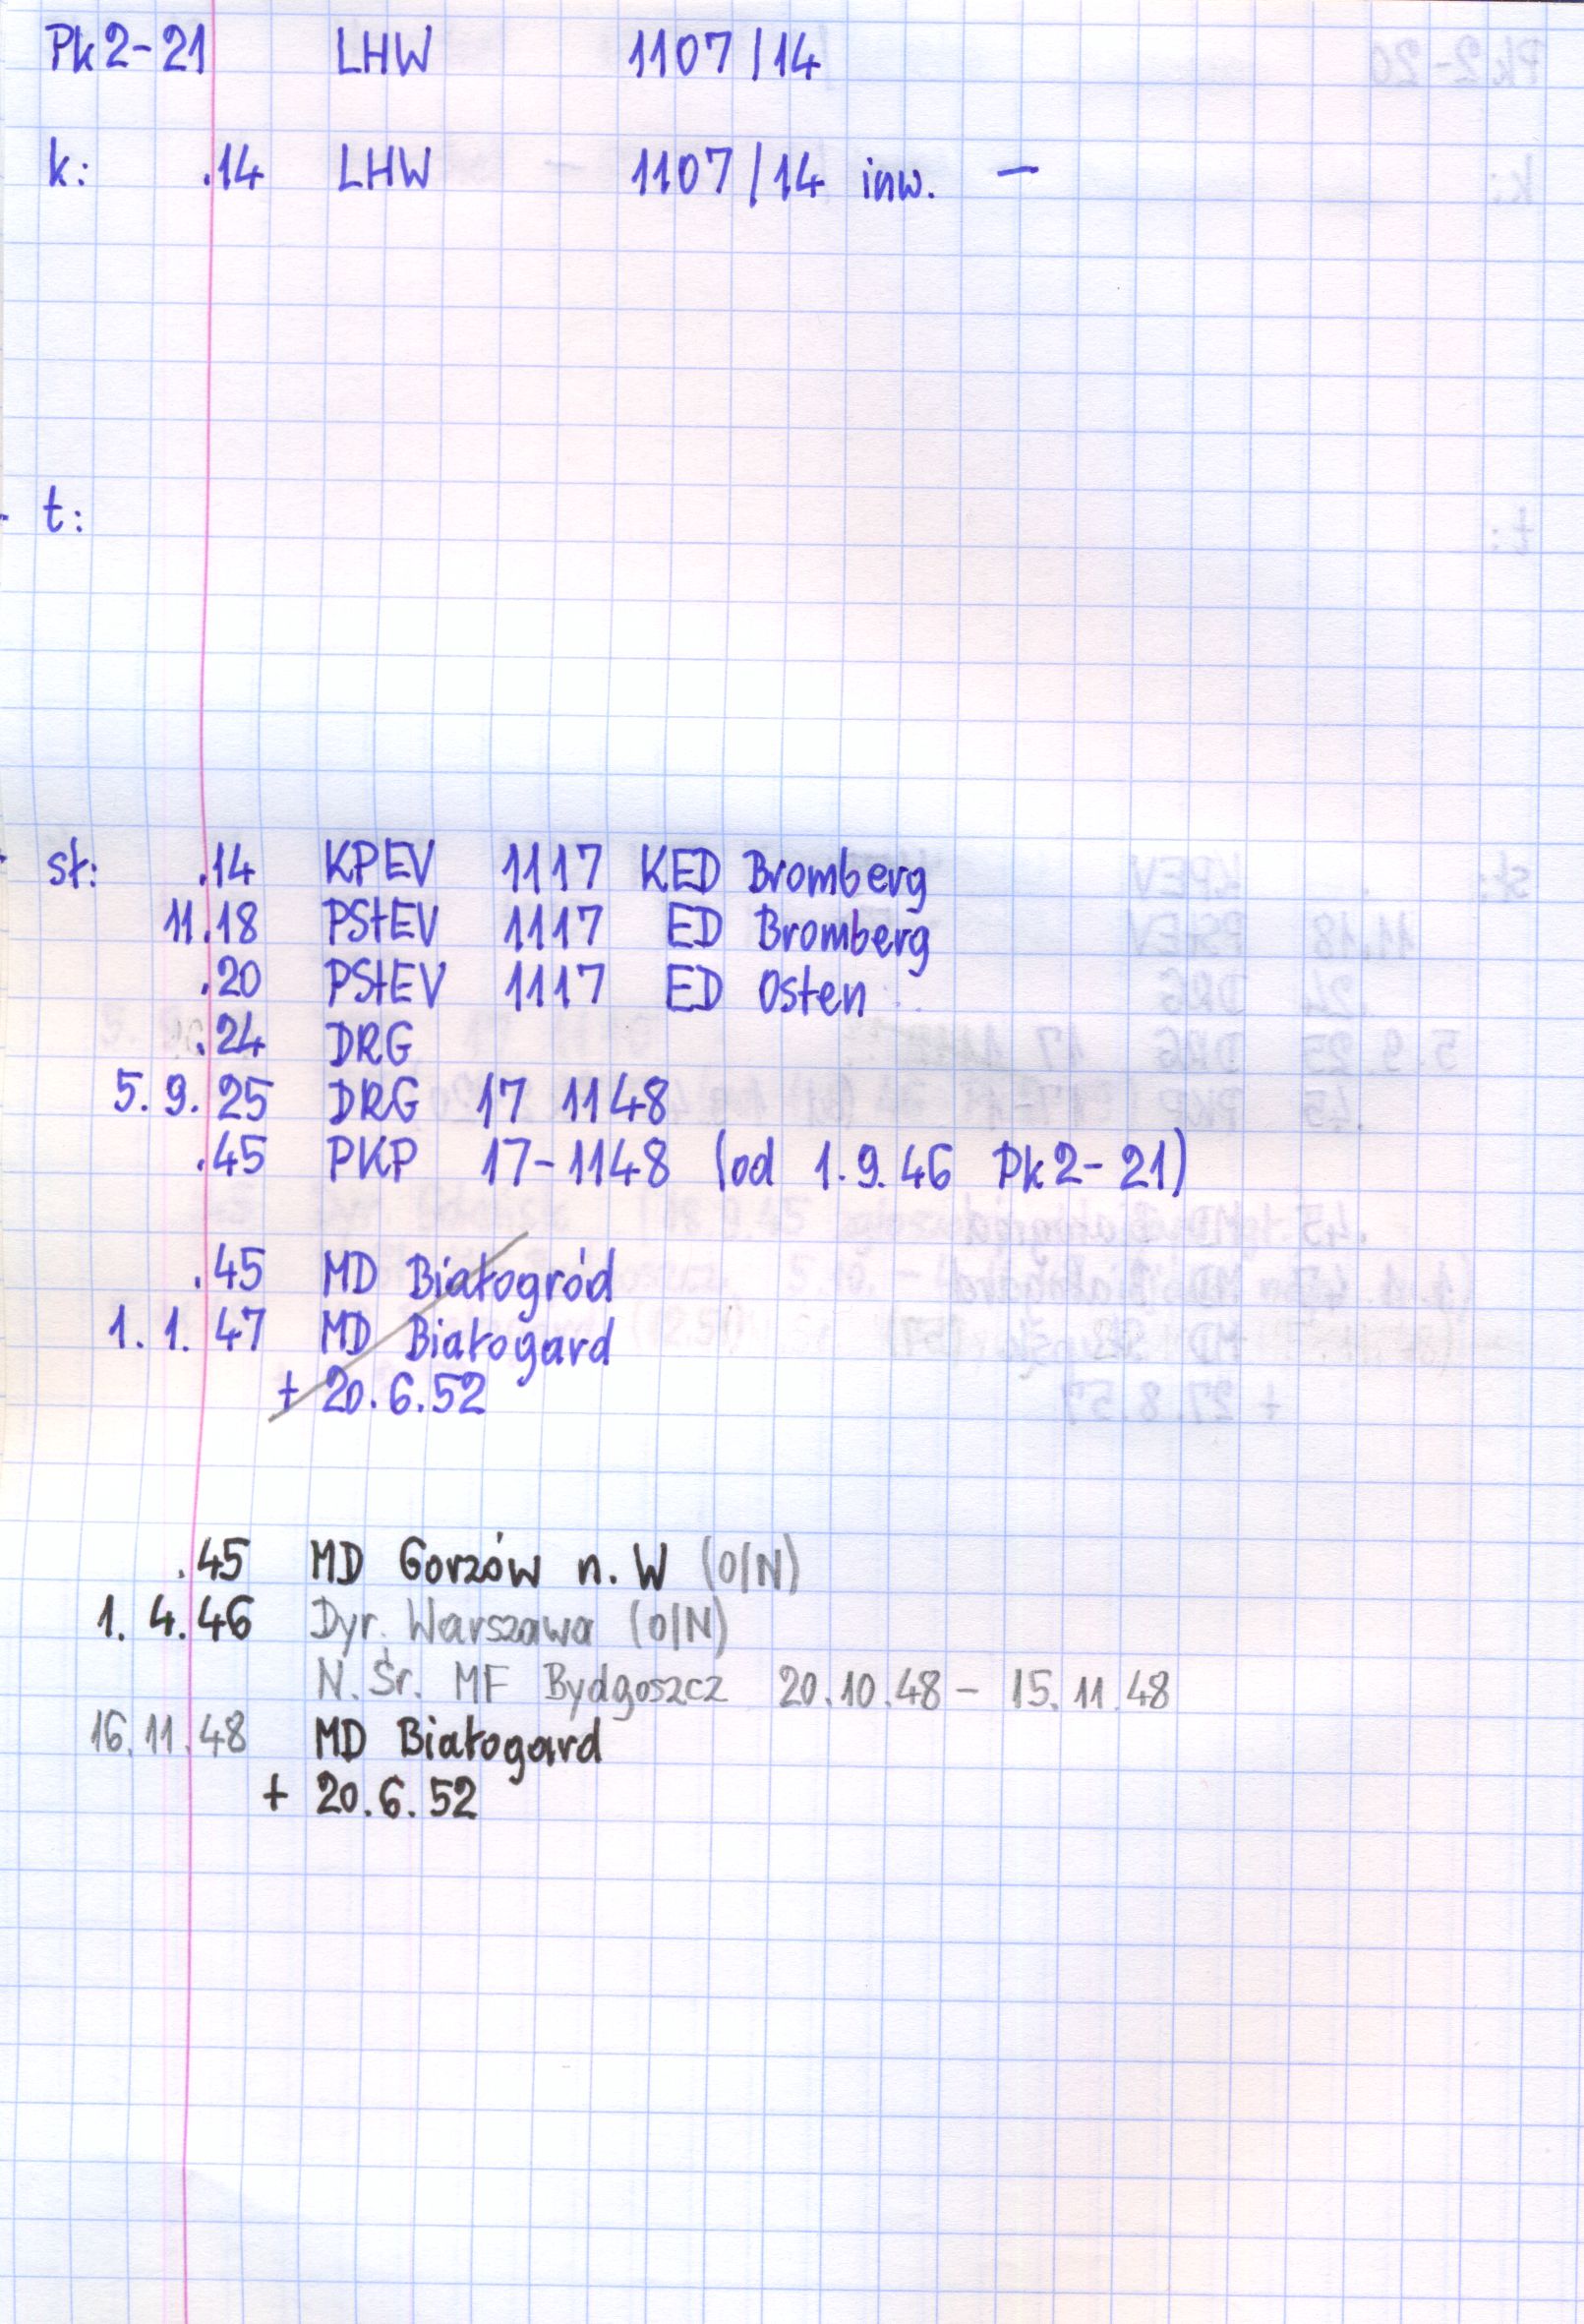 Pk2-21 LHW 1107/14
k: .14 LHW 1107/14 inw. —
t:
sł: .14 KPEV 1117 KED Bromberg
11.18 PStEV 1117 ED Bromberg
.20 PStEV 1117 ED Osten
.24 DRG
5.9.25 DRG 17 1148
.45 PKP 17-1148 (od 1.9.46 Pk2-21)
.45 MD Białogród
1.1.47 MD Białogard
+ 20.6.52
.45 MD Gorzów n. W (O/N)
1.4.46 Dyr. Warszawa (O/N)
N.Śr. MF Bydgoszcz 20.10.48 – 15.11.48
16.11.48 MD Białogard
+ 20.6.52